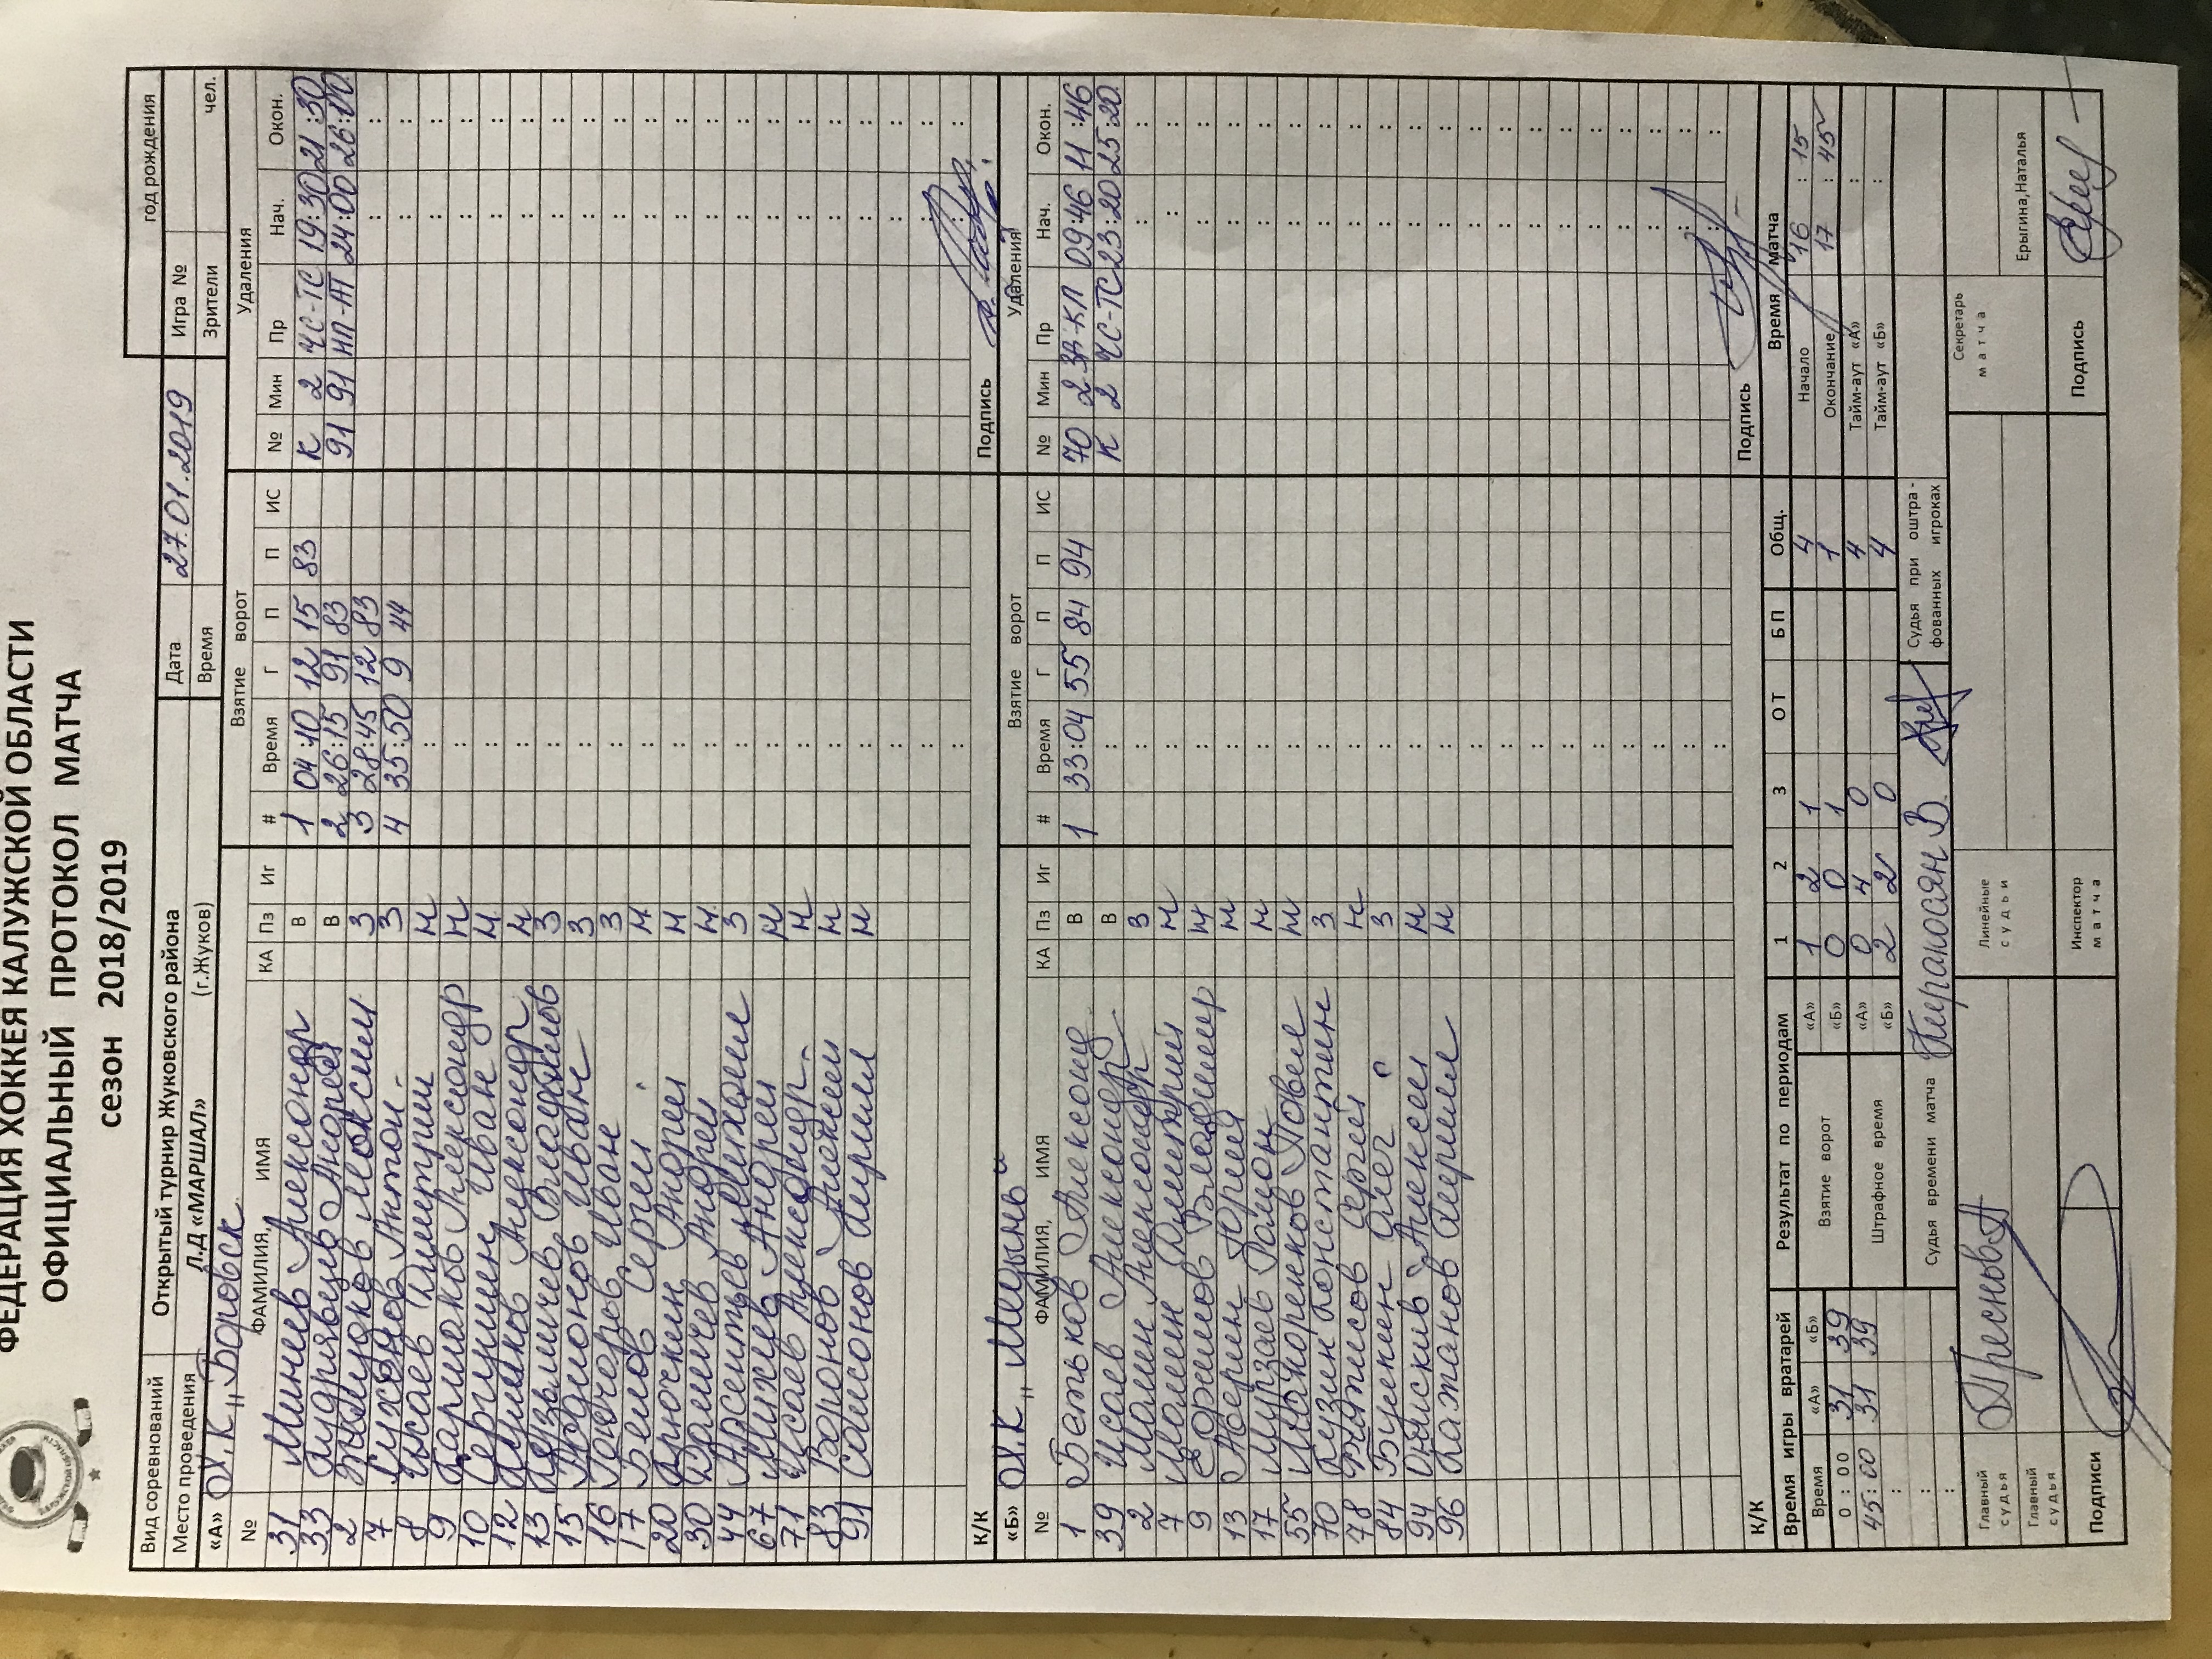 ФЕДЕРАЦИЯ ХОККЕЯ КАЛУЖСКОЙ ОБЛАСТИ
ОФИЦИАЛЬНЫЙ ПРОТОКОЛ МАТЧА
сезон 2018/2019
год рождения
Вид соревнований Открытый турнир Жуковского района Дата 27.01.2019 Игра №
Место проведения Л.Д «МАРШАЛ» (г.Жуков) Время Зрители чел.
«А» Х.К „Боровск Взятие ворот Удаления
№ ФАМИЛИЯ, ИМЯ КА Пз Иг # Время Г П П ИС № Мин Пр Нач. Окон.
31 Минеев Александр В 1 04:10 12 15 83 К 2 ЧС-ТС 19:30 21:30
33 Кудрявцев Андрей В 2 26:15 91 83 91 91 НП-АТ 24:00 26:00
2 Максим З 3 28:45 12 83
7 Суходоев Антон З 4 35:50 9 44
8 Исаев Дмитрий Н
9 Бармаков Александр Н
10 Сергушин Иван Н
12 Александр Н
13 Кузьмичев Владислав З
15 Иван З
16 Гончаров Иван З
17 Белов Сергей Н
20 Крючкин Андрей Н
30 Андрей Н
44 Арсентьев Михаил З
67 Мижуев Андрей Н
71 Исаев Александр Н
83 Воронов Алексей Н
91 Самсонов Кирилл Н
К/К Подпись
«Б» Х.К „Медынь" Взятие ворот Удаления
№ ФАМИЛИЯ, ИМЯ КА Пз Иг # Время Г П П ИС № Мин Пр Нач. Окон.
1 Бетьков Александ В 1 33:04 55 84 94 70 2 ЗД-КЛ 09:46 11:46
39 Исаев Александр В К 2 ЧС-ТС 23:20 25:20
2 Мамин Александр З
7 Дмитрий Н
9 Ефимов Владимир Н
13 Юрий Н
17 Мурзаев Роман Н
55 Макаренков Павел Н
70 Кузин Константин З
78 Фетисов Сергей Н
84 Букин Олег З
94 Алексей Н
96 Кажанов Кирилл Н
К/К Подпись
Время игры вратарей Результат по периодам 1 2 3 ОТ БП Общ. Время матча
Время «А» «Б» Взятие ворот «А» 1 2 1 4 Начало 16:15
0:00 31 39 «Б» 0 0 1 1 Окончание 17:45
45:00 31 39 Штрафное время «А» 0 4 0 4 Тайм-аут «А»
«Б» 2 2 0 4 Тайм-аут «Б»
Судья времени матча Киракосян В. Судья при оштрафованных игроках
Главный судья Преснов А Линейные судьи Секретарь матча Ерыгина Наталья
Главный судья
Подписи Инспектор матча Подпись